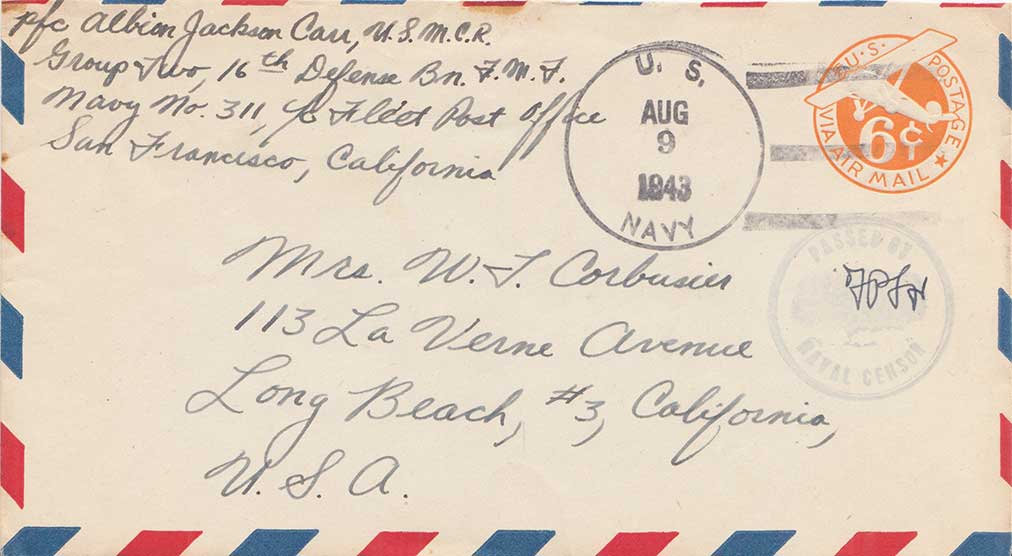 Pfc Albion Jackson Carr, U.S.M.C.R.
Group Two, 16th Defense Bn. F.M.F.
Navy No. 311, c/o Fleet Post Office
San Francisco, California
U. S.
AUG
9
1943
NAVY
U.S. POSTAGE
6¢
VIA AIR MAIL
PASSED BY
NAVAL CENSOR
Mrs. W. T. Corbusier
113 La Verne Avenue
Long Beach, #3, California,
U. S. A.